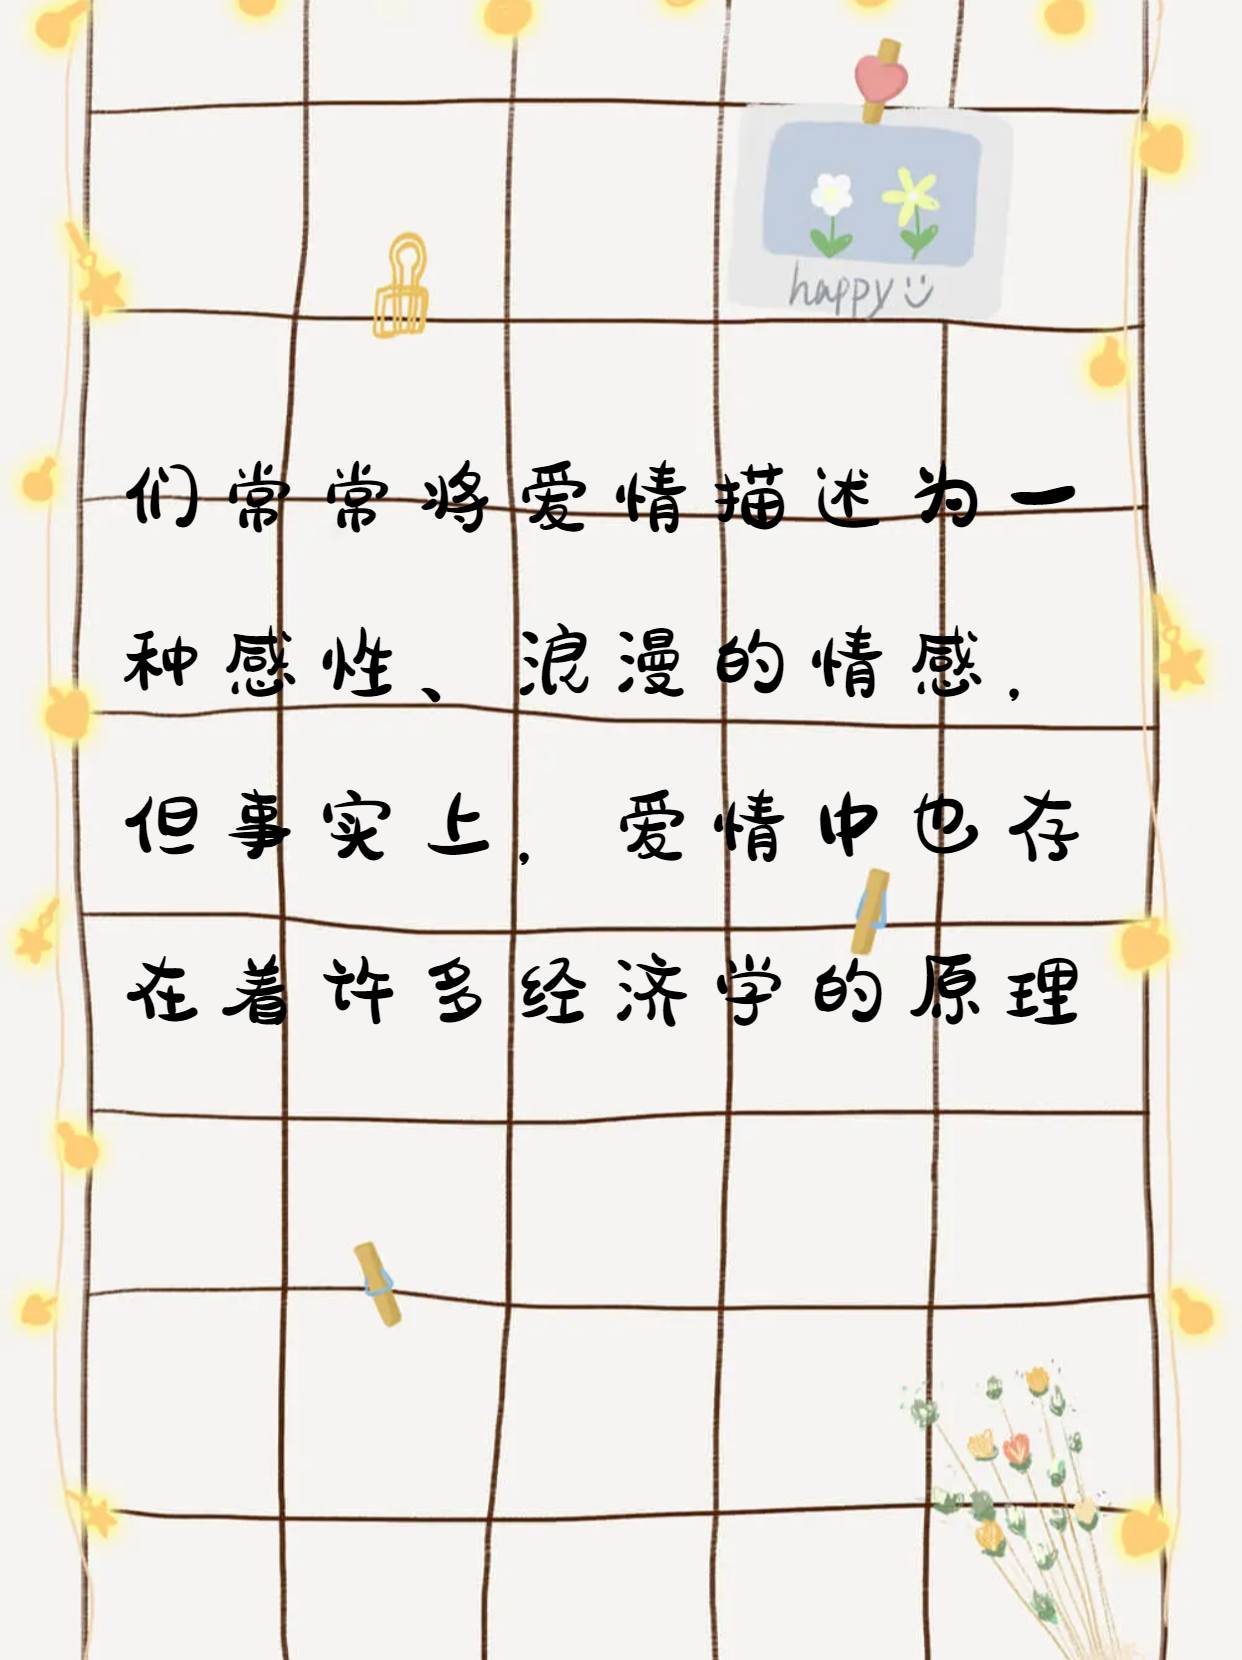 happy
们常常将爱情描述为一
种感性、浪漫的情感，
但事实上，爱情中也存
在着许多经济学的原理